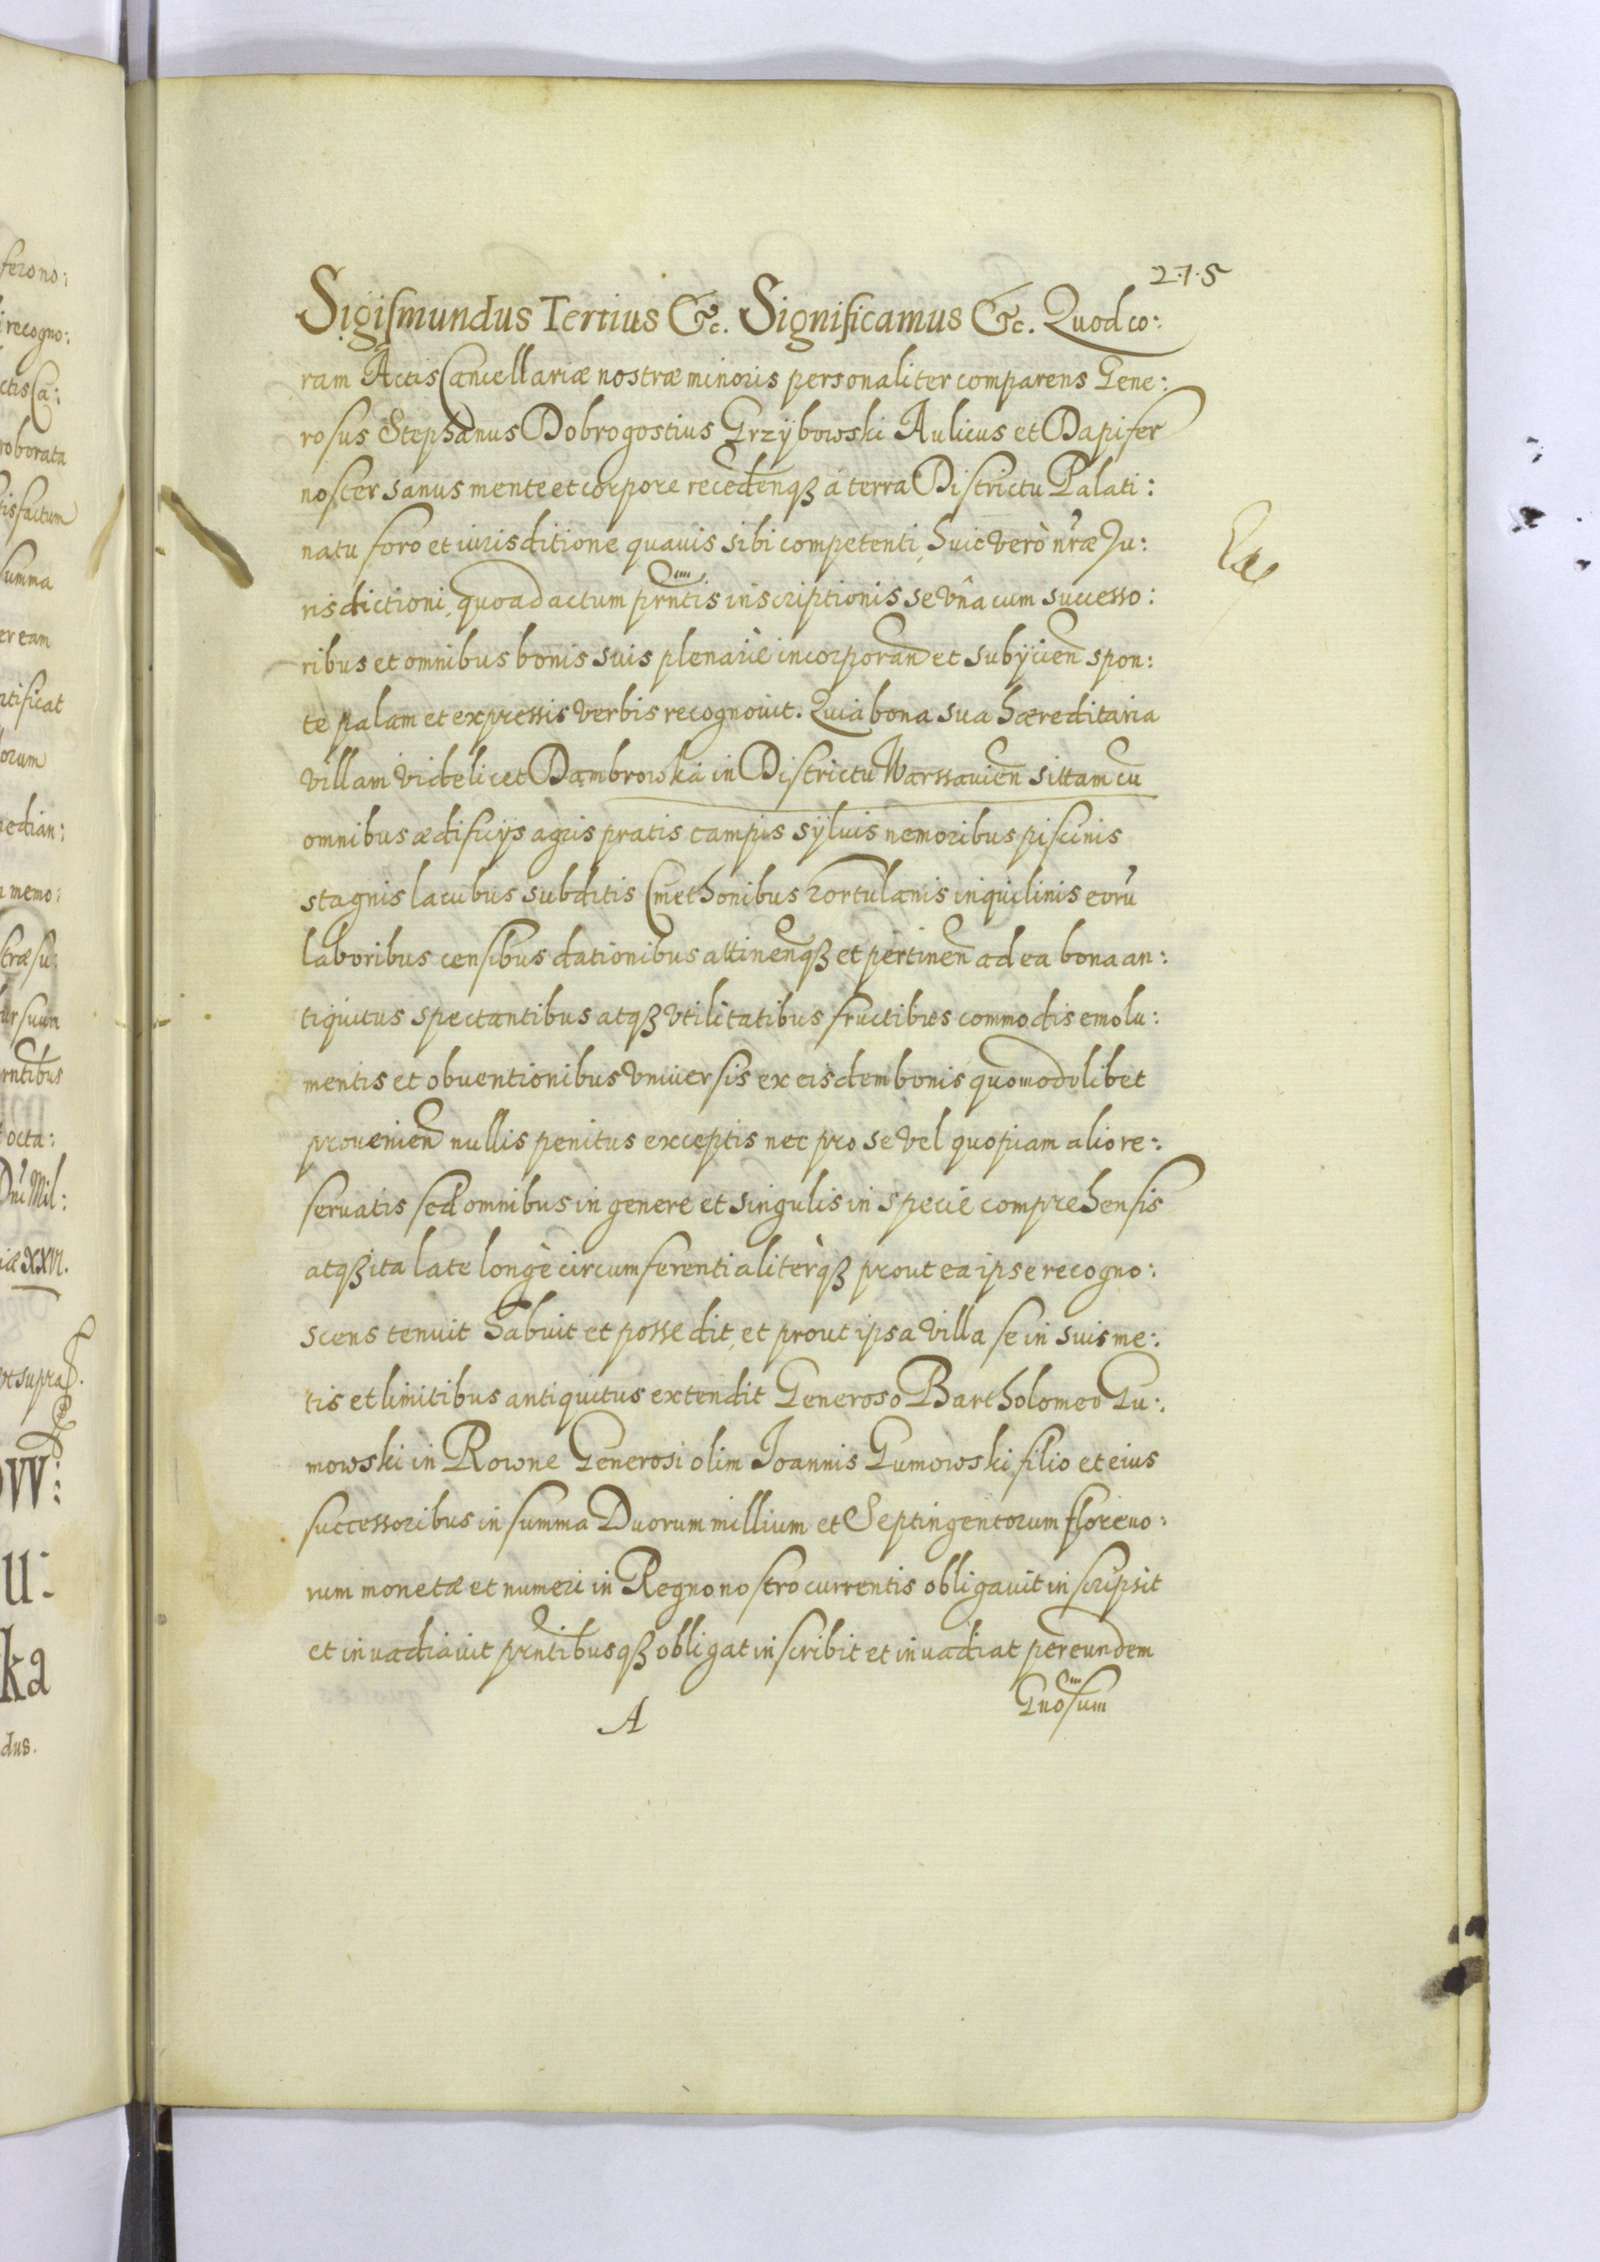 275
Sigismundus Tertius &c. Significamus &c. Quod co:
ram Actis Cancellariæ nostræ minoris personaliter comparens Gene:
rosus Stephanus Dobrogostius Grzybowski Aulicus et Dapifer
noster sanus mente et corpore recedenqȝ à terra Districtu Palati:
natu foro et iurisditione quauis sibi competenti, huic verò nr̃æ Ju:
risdictioni, quoad actum prntis inscriptionis se vnâ cum successo:
ribus et omnibus bonis suis plenariè incorporan et subÿcien spon:
te palam et expressis verbis recognouit. Quia bona sua hæreditaria
villam videlicet Dambrowka in Districtu Warssauien sittam cũ
omnibus ædificÿs agris pratis campis sÿluis nemoribus piscinis
stagnis lacubus subditis Cmethonibus hortulanis inquilinis eorũ
laboribus censibus dationibus attinenqȝ et pertinen ad ea bona an:
tiquitus spectantibus atqȝ vtilitatibus fructibus commodis emolu:
mentis et obuentionibus vniuersis ex eisdem bonis quomodolibet
prouenien nullis penitus exceptis nec pro se vel quopiam alio re:
seruatis sed omnibus in genere et singulis in specie comprehensis
atqȝ ita late longè circumferentialiterqȝ prout ea ipse recogno:
scens tenuit habuit et possedit, et prout ipsa villa se in suis me:
tis et limitibus antiquitus extendit Generoso Bartholomeo Gu:
mowski in Rowne Generosi olim Joannis Gumowski filio et eius
successoribus in summa Duorum millium et Septingentorum floreno:
rum monetæ et numeri in Regno nostro currentis obligauit inscripsit
et inuadiauit prntibusqȝ obligat inscribit et inuadiat per eundem
Gnosum
A